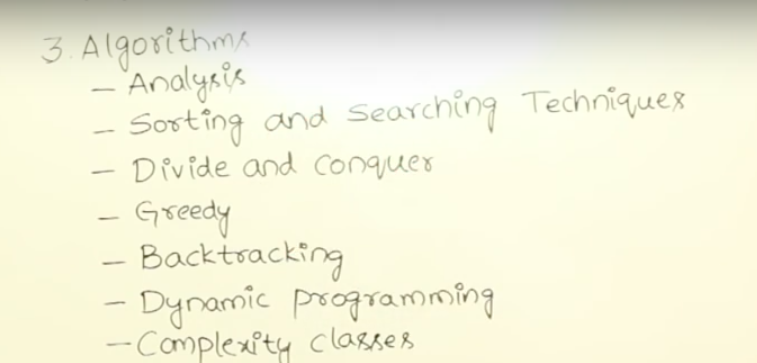 3. Algorithms
- Analysis
- Sorting and Searching Techniques
- Divide and conquer
- Greedy
- Backtracking
- Dynamic programming
- Complexity classes